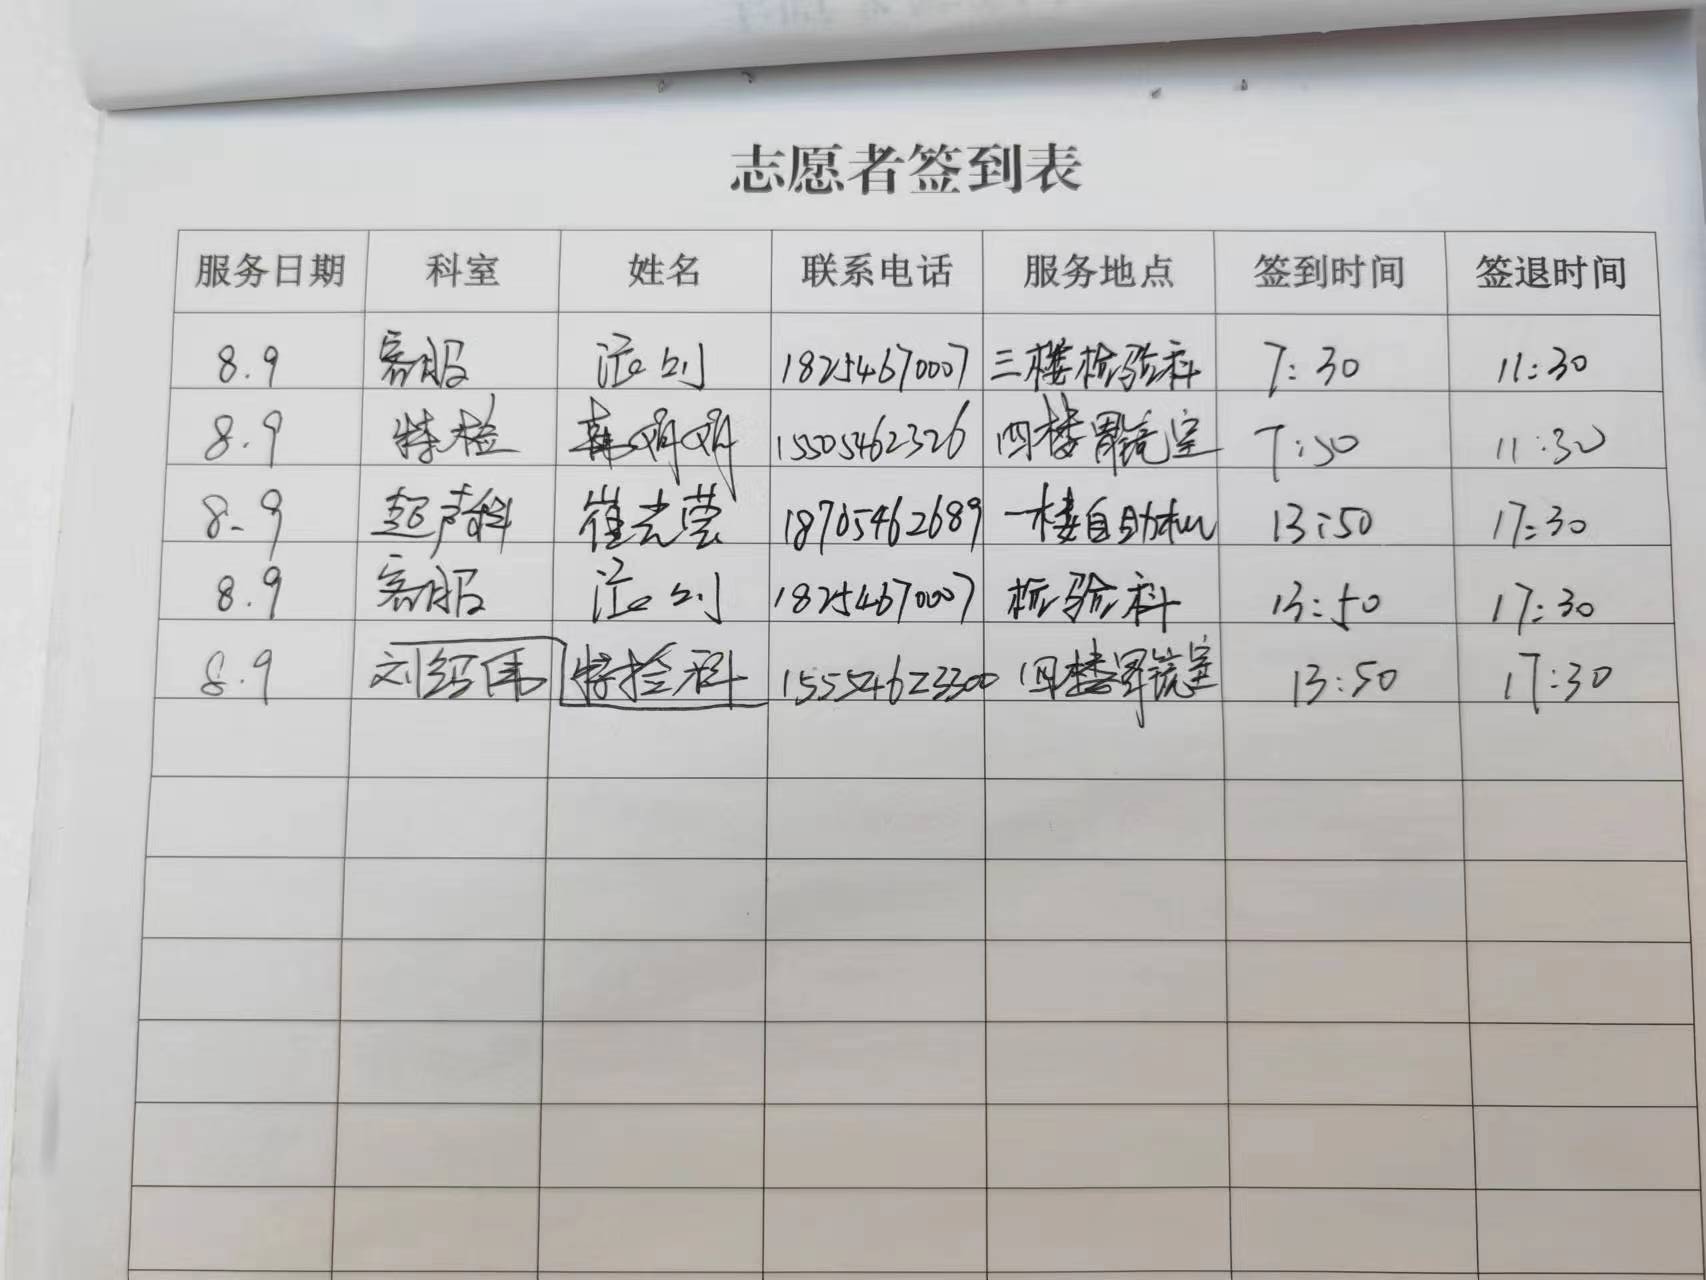 志愿者签到表
服务日期 科室 姓名 联系电话 服务地点 签到时间 签退时间
8.9 客服 18254670007 三楼检验科 7:30 11:30
8.9 特检 韩 15505462326 四楼胃镜室 7:50 11:30
8-9 超声科 崔光莹 18705462689 一楼自助机 13:50 17:30
8.9 客服 18254670007 检验科 13:50 17:30
8.9 刘绍伟 特检科 15554623300 四楼胃镜室 13:50 17:30